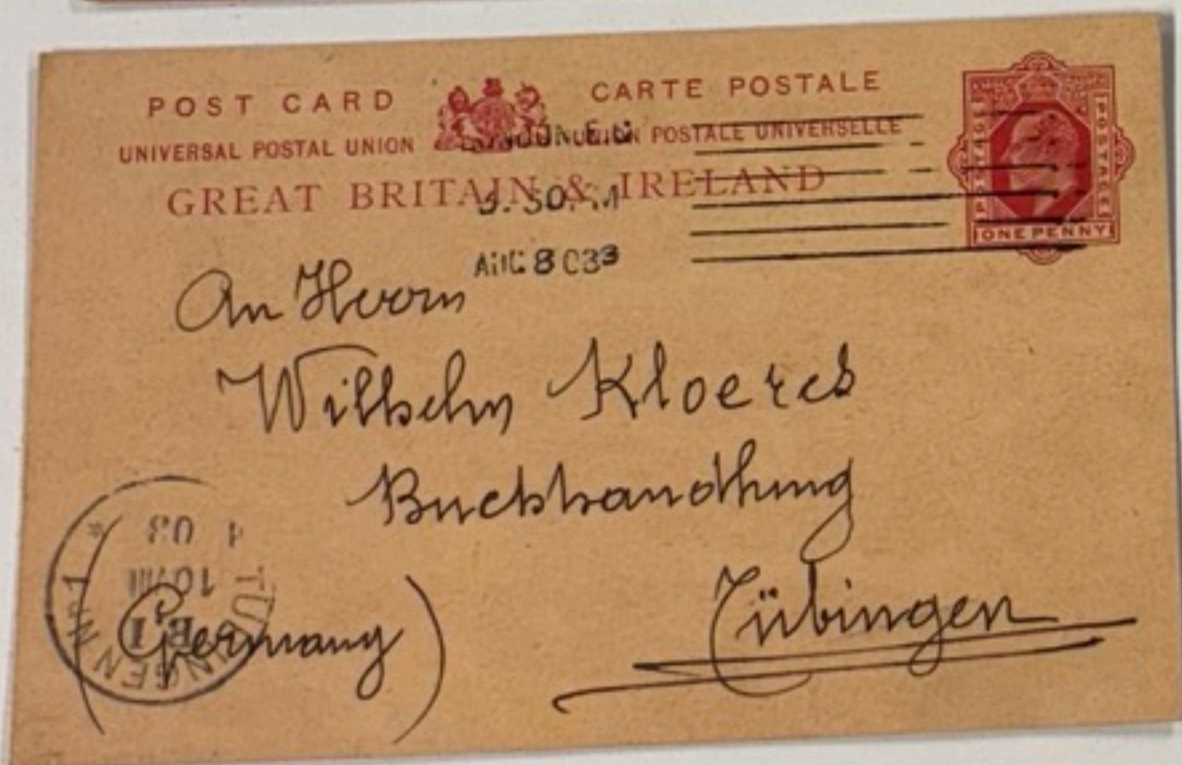 POST CARD CARTE POSTALE
UNIVERSAL POSTAL UNION UNION POSTALE UNIVERSELLE
GREAT BRITAIN & IRELAND
POSTAGE POSTAGE
ONE PENNY
AUG 8 03
An Herrn
Wilhelm Kloeres
Buchhandlung
Tübingen
(Germany)
TÜBINGEN No 1